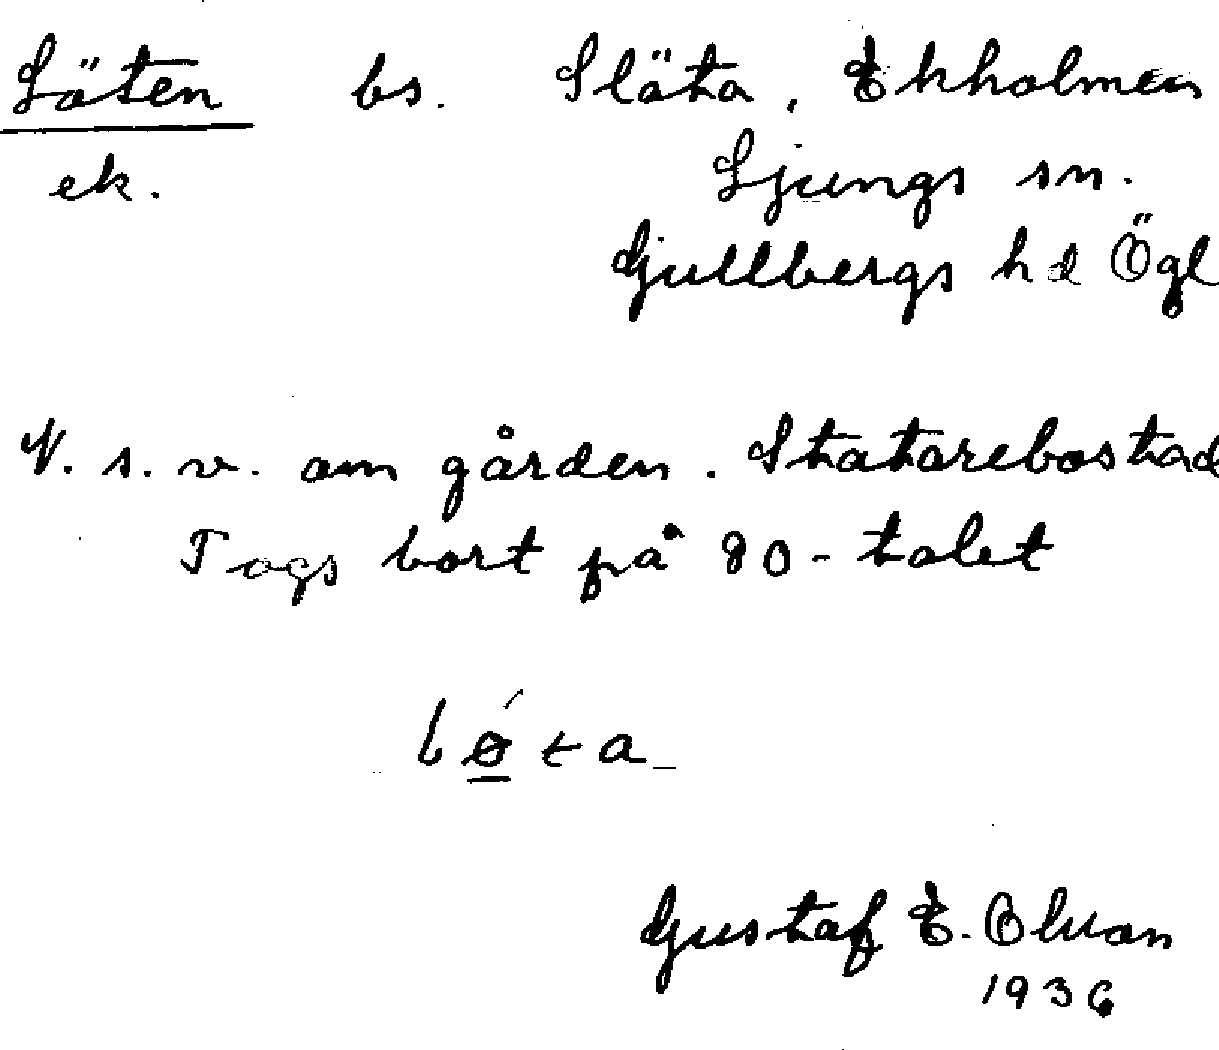 Löten bs. Slöta, Ekholmen
ek. Ljungs sn.
Gullbergs hd Ögl
N. s. v. om gården. Statarebostad
Togs bort på 80-talet
lǿta_
Gustaf E. Olson
1936